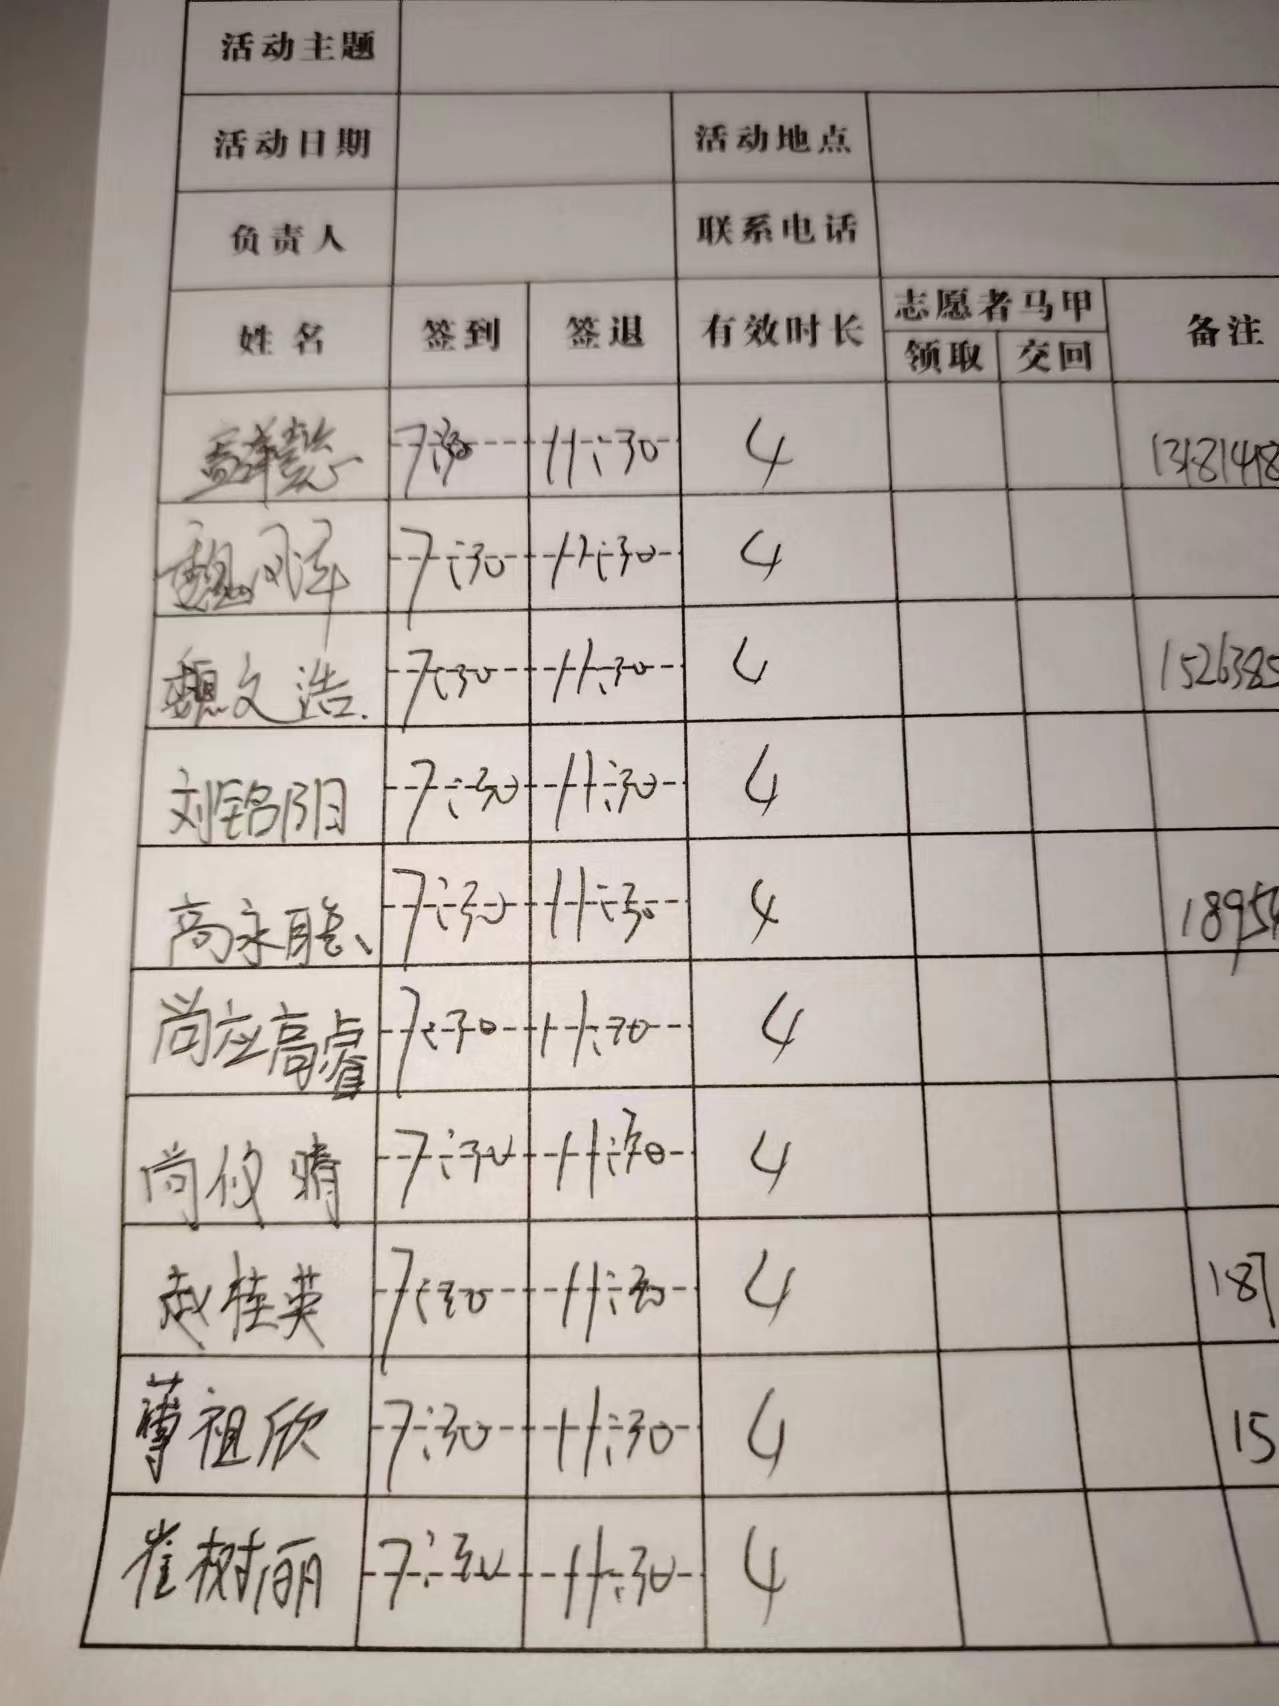 活动主题
活动日期 活动地点
负责人 联系电话
姓名 签到 签退 有效时长 志愿者马甲 备注
领取 交回
7:30 11:30 4
魏风泽 7:30 11:30 4
魏文浩 7:30 11:30 4 1526385
刘铭阳 7:30 11:30 4
高永聪 7:30 11:30 4 1895
尚应高睿 7:30 11:30 4
尚攸晴 7:30 11:30 4
赵桂英 7:30 11:30 4 187
薄祖欣 7:30 11:30 4 15
崔树丽 7:30 11:30 4